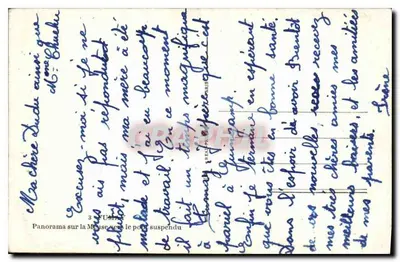 Ma chère Dadu ainsi que
Mme
Excusez-moi si je ne
vous ai pas répondu
plus tôt, mais ma mère à été
malade et j'ai eu beaucoup
de travail. En ce moment
il fait un temps magnifique
à j'espère que c'est
pareil à Guincamp.
Enfin je termine en espérant
que vous êtes en bonne santé.
Dans l'espoir de avoir bientôt
de vos nouvelles recevez
mes très chères amies mes
meilleurs baisers, et les amitiés
de mes parents.
Irène
Panorama sur la Meuse vers le pont suspendu